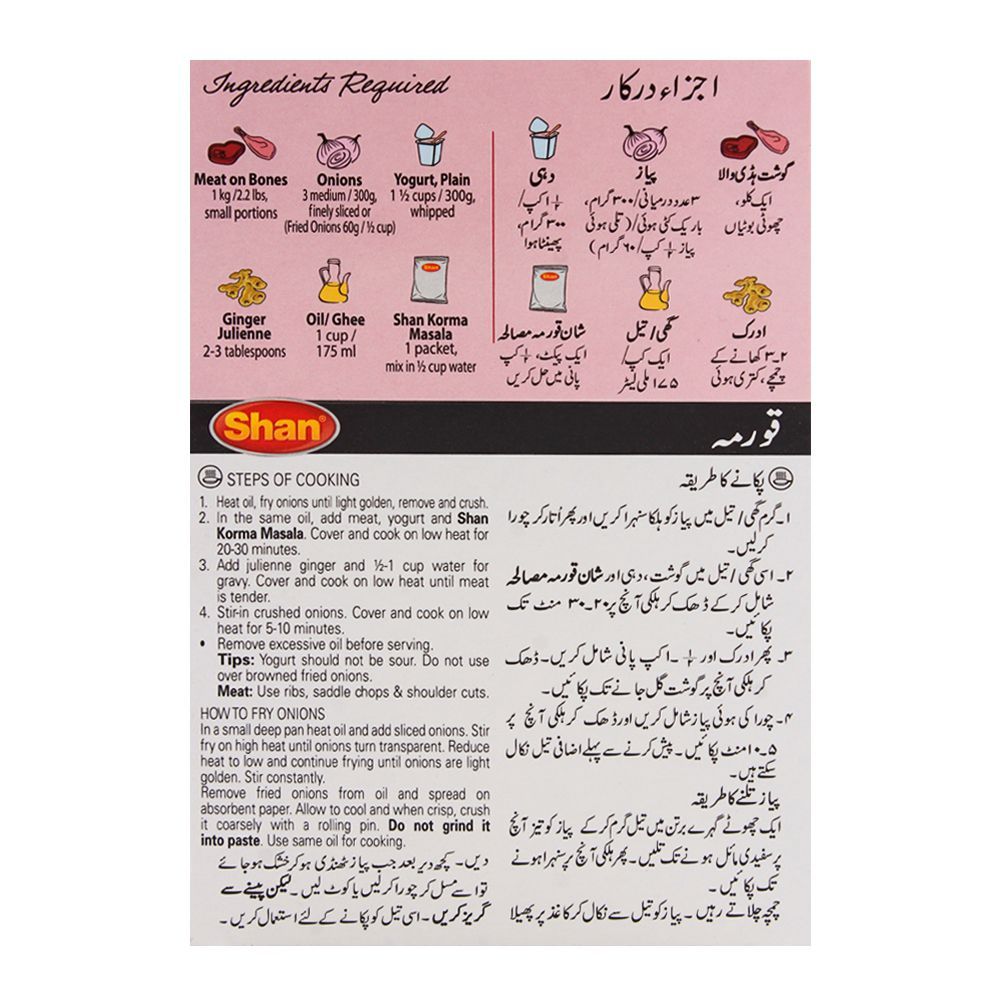 Ingredients Required
Meat on Bones
1 kg /2.2 lbs,
small portions
Onions
3 medium / 300g,
finely sliced or
(Fried Onions 60g / ½ cup)
Yogurt, Plain
1 ½ cups / 300g,
whipped
Ginger
Julienne
2-3 tablespoons
Oil/ Ghee
1 cup /
175 ml
Shan
Shan Korma
Masala
1 packet,
mix in ½ cup water
اجزاء درکار
گوشت ہڈی والا
ایک کلو،
چھوٹی بوٹیاں
پیاز
۳ عدد درمیانی/۳۰۰ گرام،
باریک کٹی ہوئی/(تلی ہوئی
پیاز ½ کپ/ ۶۰ گرام)
دہی
½ ۱ کپ/
۳۰۰ گرام،
پھینٹا ہوا
ادرک
۲-۳ کھانے کے
چمچے، کتری ہوئی
گھی/ تیل
ایک کپ/
۱۷۵ ملی لیٹر
Shan
شان قورمہ مصالحہ
ایک پیکٹ، ½ کپ
پانی میں حل کریں
Shan®
قورمہ
STEPS OF COOKING
1. Heat oil, fry onions until light golden, remove and crush.
2. In the same oil, add meat, yogurt and Shan
Korma Masala. Cover and cook on low heat for
20-30 minutes.
3. Add julienne ginger and ½-1 cup water for
gravy. Cover and cook on low heat until meat
is tender.
4. Stir-in crushed onions. Cover and cook on low
heat for 5-10 minutes.
• Remove excessive oil before serving.
Tips: Yogurt should not be sour. Do not use
over browned fried onions.
Meat: Use ribs, saddle chops & shoulder cuts.
HOW TO FRY ONIONS
In a small deep pan heat oil and add sliced onions. Stir
fry on high heat until onions turn transparent. Reduce
heat to low and continue frying until onions are light
golden. Stir constantly.
Remove fried onions from oil and spread on
absorbent paper. Allow to cool and when crisp, crush
it coarsely with a rolling pin. Do not grind it
into paste. Use same oil for cooking.
پکانے کا طریقہ
۱۔ گرم گھی/ تیل میں پیاز کو ہلکا سنہرا کریں اور پھر اتار کر چورا
کر لیں۔
۲۔ اسی گھی/ تیل میں گوشت، دہی اور شان قورمہ مصالحہ
شامل کر کے ڈھک کر ہلکی آنچ پر ۲۰-۳۰ منٹ تک
پکائیں۔
۳۔ پھر ادرک اور ½ -۱ کپ پانی شامل کریں۔ ڈھک
کر ہلکی آنچ پر گوشت گل جانے تک پکائیں۔
۴۔ چورا کی ہوئی پیاز شامل کریں اور ڈھک کر ہلکی آنچ پر
۵-۱۰ منٹ پکائیں۔ پیش کرنے سے پہلے اضافی تیل نکال
سکتے ہیں۔
پیاز تلنے کا طریقہ
ایک چھوٹے گہرے برتن میں تیل گرم کر کے پیاز کو تیز آنچ
پر سفیدی مائل ہونے تک تلیں۔ پھر ہلکی آنچ پر سنہرا ہونے
تک پکائیں۔
چمچہ چلاتے رہیں۔ پیاز کو تیل سے نکال کر کاغذ پر پھیلا
دیں۔ کچھ دیر بعد جب پیاز ٹھنڈی ہو کر خشک ہو جائے
تو اسے مسل کر چورا کر لیں یا کوٹ لیں۔ لیکن پیسنے سے
گریز کریں۔ اسی تیل کو پکانے کے لئے استعمال کریں۔